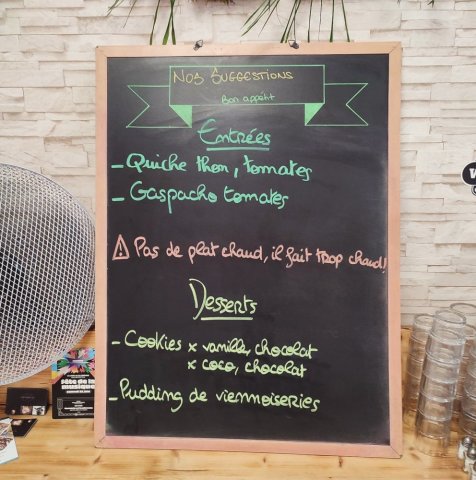 NOS SUGGESTIONS
Bon appétit
Entrées
- Quiche thon, tomates
- Gaspacho tomates
⚠ Pas de plat chaud, il fait trop chaud!
Desserts
- Cookies x vanille, chocolat
x coco, chocolat
- Pudding de viennoiseries
fête de la
musique